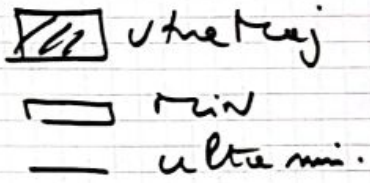 Utra Maj
Min
ultra min.